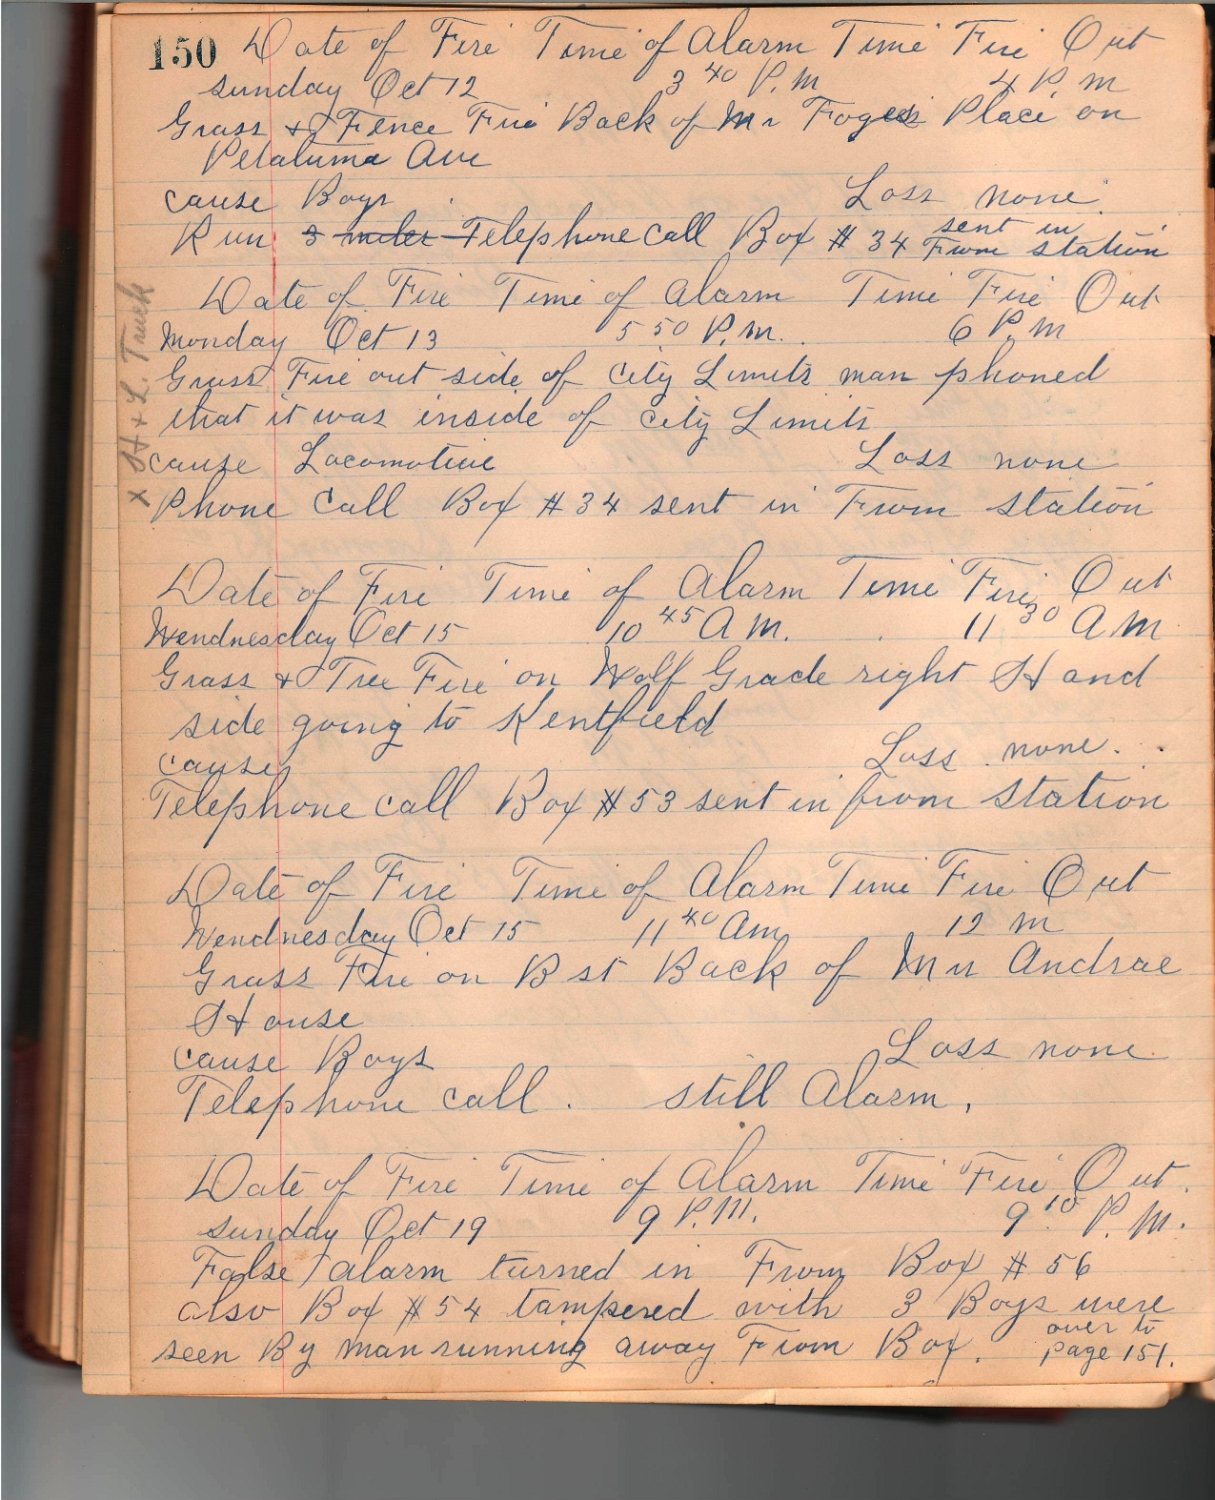 150 Date of Fire Time of Alarm Time Fire Out
sunday Oct 12 3 40 P.M 4 P.M
Grass & Fence Fire Back of Mr Place on
Petaluma Ave
cause Boys Loss none.
Run 3 miles Telephone call Box # 34 sent in From station
Date of Fire Time of Alarm Time Fire Out
Monday Oct 13 5 50 P.M. 6 P.M
Grass Fire out side of city Limits man phoned
that it was inside of city Limits
cause Locomotive Loss none
Phone Call Box # 34 sent in From station
x H & L. Truck
Date of Fire Time of Alarm Time Fire Out
Wendnesday Oct 15 10 45 A M. 11 30 A M
Grass & Tree Fire on Wolf Grade right Hand
side going to Kentfield
cause Loss none.
Telephone call Box # 53 sent in from station
Date of Fire Time of Alarm Time Fire Out
Wendnesday Oct 15 11 40 Am 12 m
Grass Fire on B st Back of Andrae
House
cause Boys Loss none.
Telephone call. still Alarm.
Date of Fire Time of Alarm Time Fire Out.
sunday Oct 19 9 P.M. 9 10 P.M.
False Alarm turned in From Box # 56
also Box # 54 tampered with 3 Boys were
seen By man running away From Box. over to
page 151.